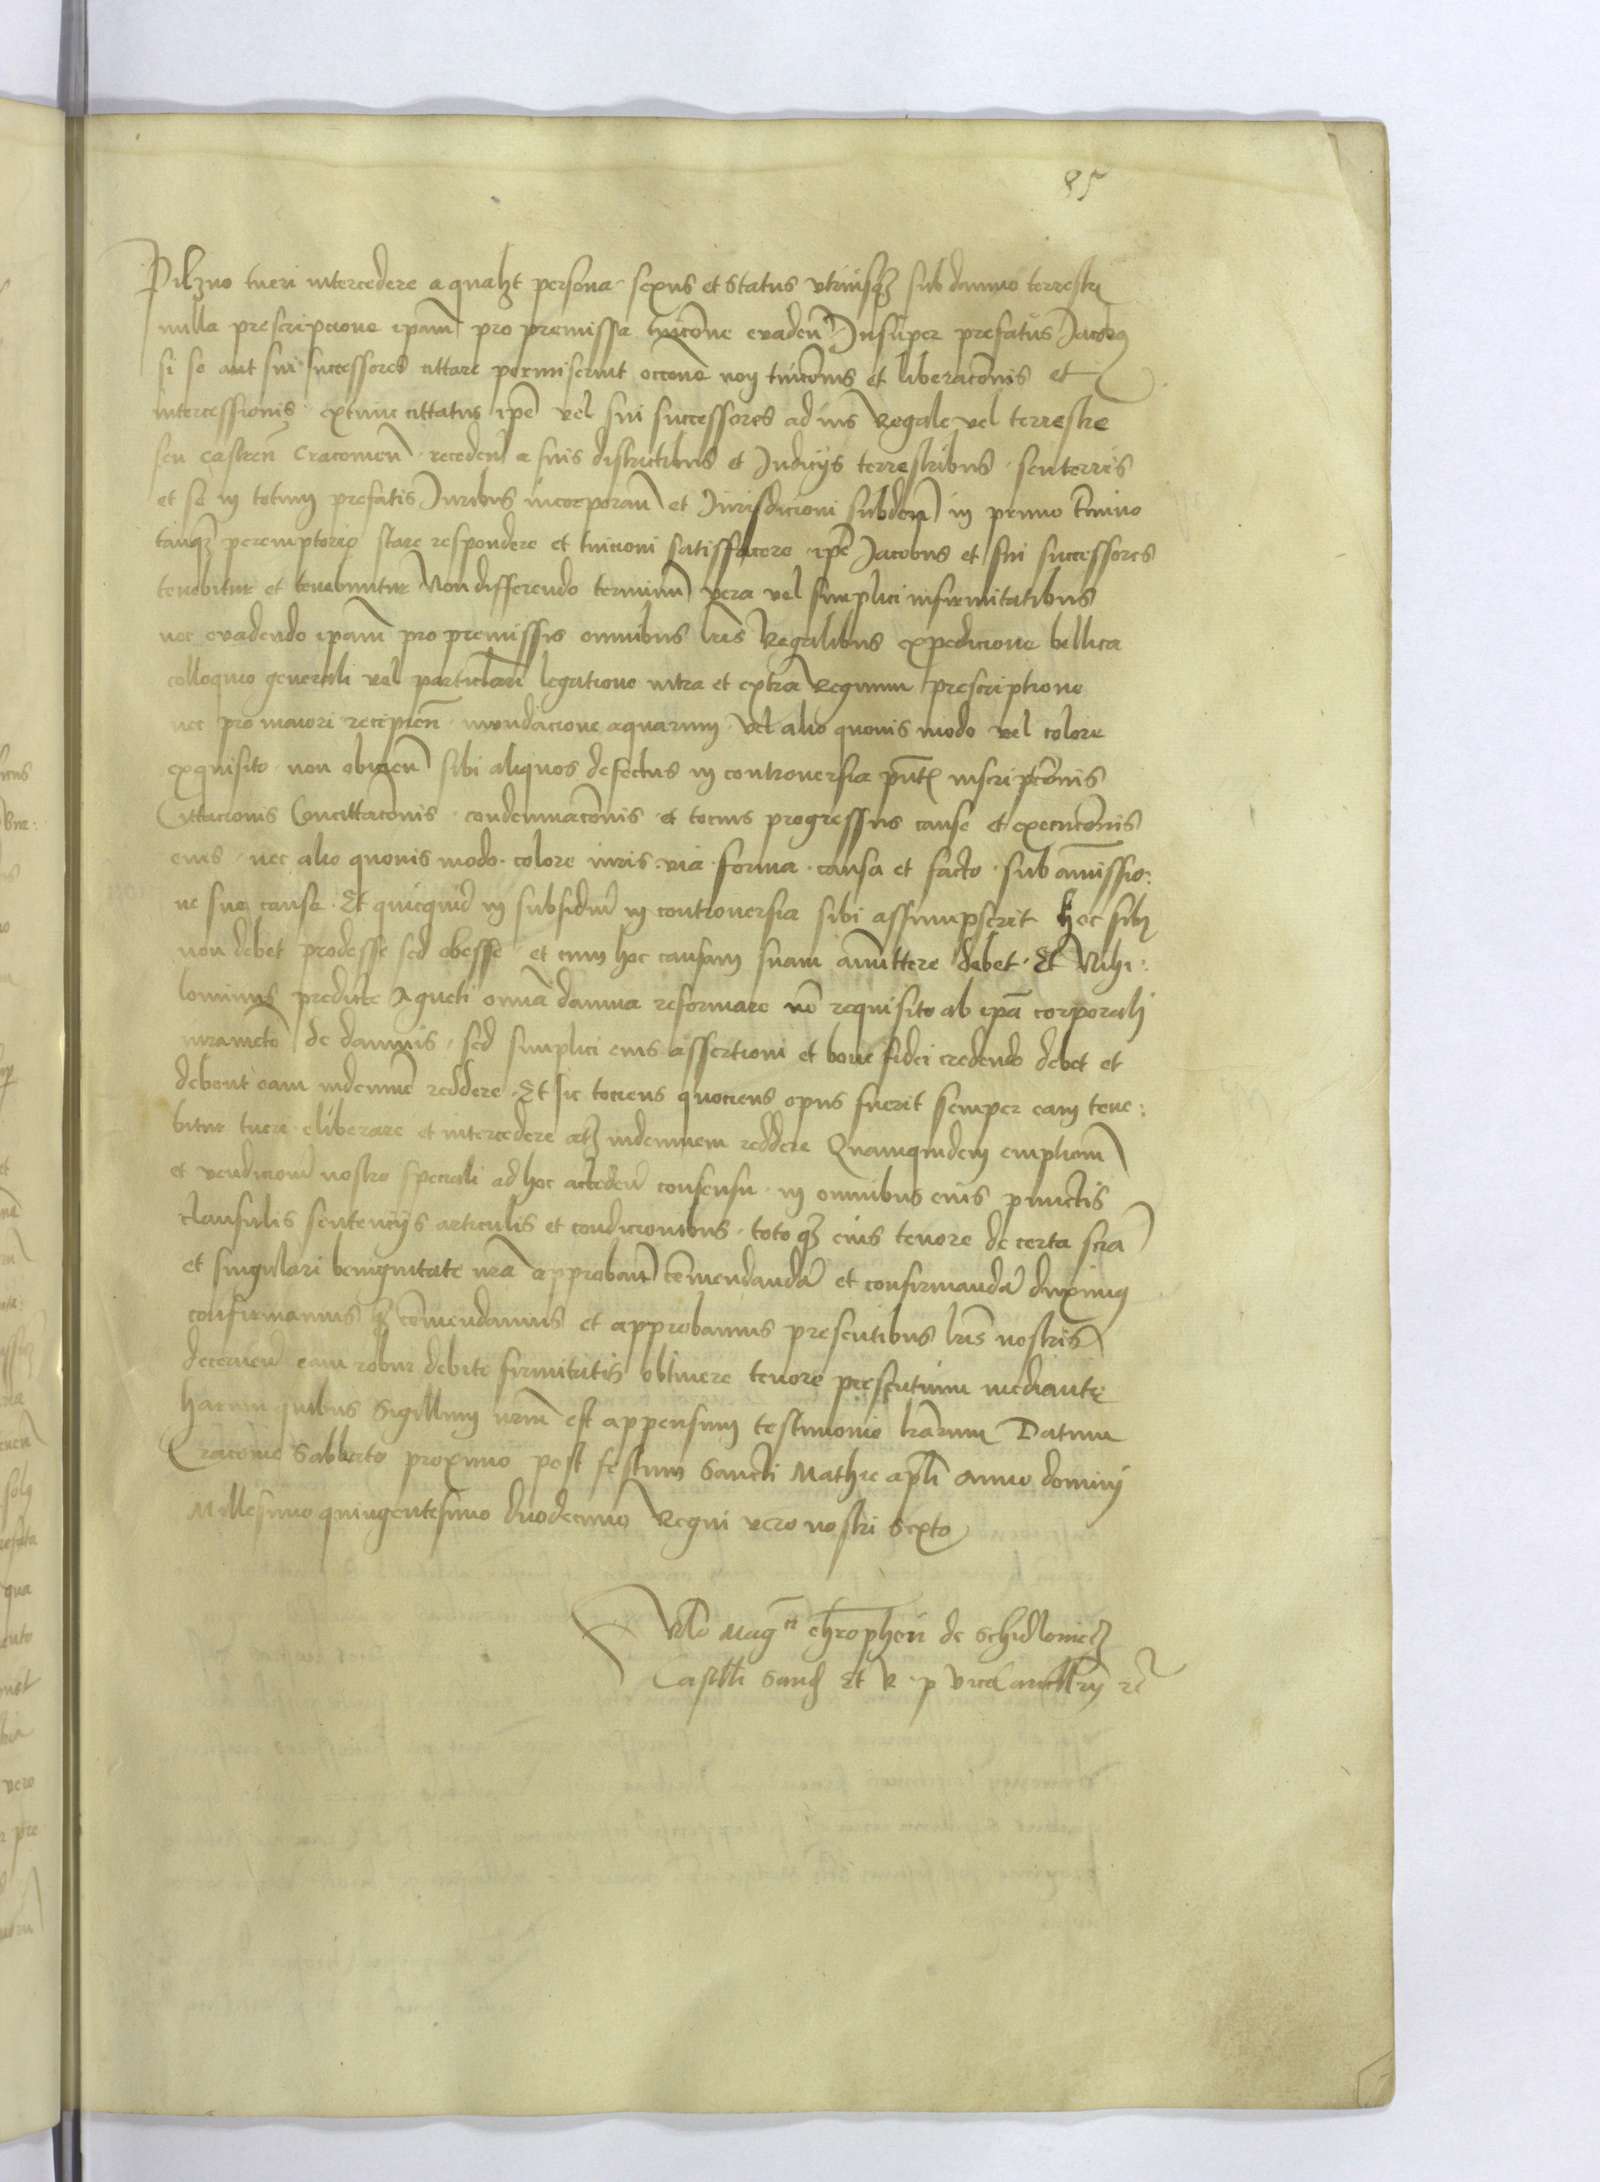 85
Pilzno tueri intercedere a qualzt persona sexus et status utriusqz sub damno terrestri
nulla prescripcione ipam pro premissa tuicone evaden Insuper prefatus Jacobus
si se aut sui successores cittare permiserint occone non tuiconis et liberaconis et
intercessionis extunc cittatus ipe vel sui successores ad ius Regale vel terrestre
seu castren Cracovien receden a suis districtibus et Judicijs terrestribus seu terris
et se in totum prefatis Juribus incorporan et Jurisdicioni subden in primo termino
tanqz peremptorio stare respondere et tuicioni satisfacere ipe Jacobus et sui successores
tenebitur et tenebuntur Non differendo terminum vera vel simplici infirmitatibus
nec evadendo ipam pro premissis omnibus lris Regalibus expedicione bellica
colloquio generali vel particulari legatione intra et extra Regnum prescriptione
nec pro maiori recipien inundacione aquarum vel alio quovis modo vel colore
exquisito non obicien sibi aliquos defectus in controversia pnt inscripconis
Cittacionis Concittaconis condemnaconis et tocius progressus cause et execuconis
eius nec alio quovis modo colore iuris via forma causa et facto sub amissio:
ne sue cause Et quicquid in subsidium in controversia sibi assumpserit hoc sibi
non debet prodesse sed obesse et cum hoc causam suam amittere debet Et Nihi:
lominus predicte Agneti omia damna reformare no requisito ab ipa corporali
iuramento de damnis sed simplici eius assertioni et bone fidei credendo debet et
debent eam indemnem reddere Et sic tociens quociens opus fuerit semper eam tene:
bitur tueri eliberare et intercedere atqz indemnem reddere Quamquidem emptionem
et vendicionem nostro speciali ad hoc acceden consensu in omnibus eius punctis
clausulis sentencijs articulis et condicionibus totoqz eius tenore de certa scia
et singulari benignitate nra approban comendandam et confirmandam duximus
confirmamusqz comendamus et approbamus presentibus lris nostris
decernen eam robur debite firmitatis obtinere tenore presentium mediante
harum quibus Sigillum nrum est appensum testimonio lrarum Datum
Cracovie Sabbato proximo post festum Sancti Mathie apli Anno domini
Millesimo quingentesimo duodecimo Regni vero nostri Sexto
Rlo Magci Chrophori de Schidlowiecz
Castlli Sand Et R p Vicecancellrij rc